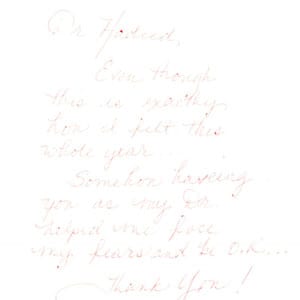 Dr Halsted,
Even though
this is exactly
how I felt this
whole year..
Somehow having
you as my Dr.
helped me face
my fears and be O.K...
Thank You!